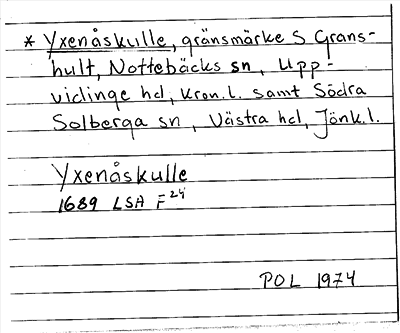 * Yxenåskulle, gränsmärke S Grans-
hult, Nottebäcks sn, Upp-
vidinge hd, Kron.l. samt Södra
Solberga sn, Västra hd, Jönk.l.
Yxenåskulle
1689 LSA F 24
POL 1974